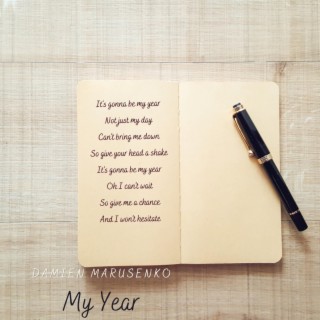 It's gonna be my year
Not just my day
Can't bring me down
So give your head a shake
It's gonna be my year
Oh I can't wait
So give me a chance
And I won't hesitate
DAMIEN MARUSENKO
My Year